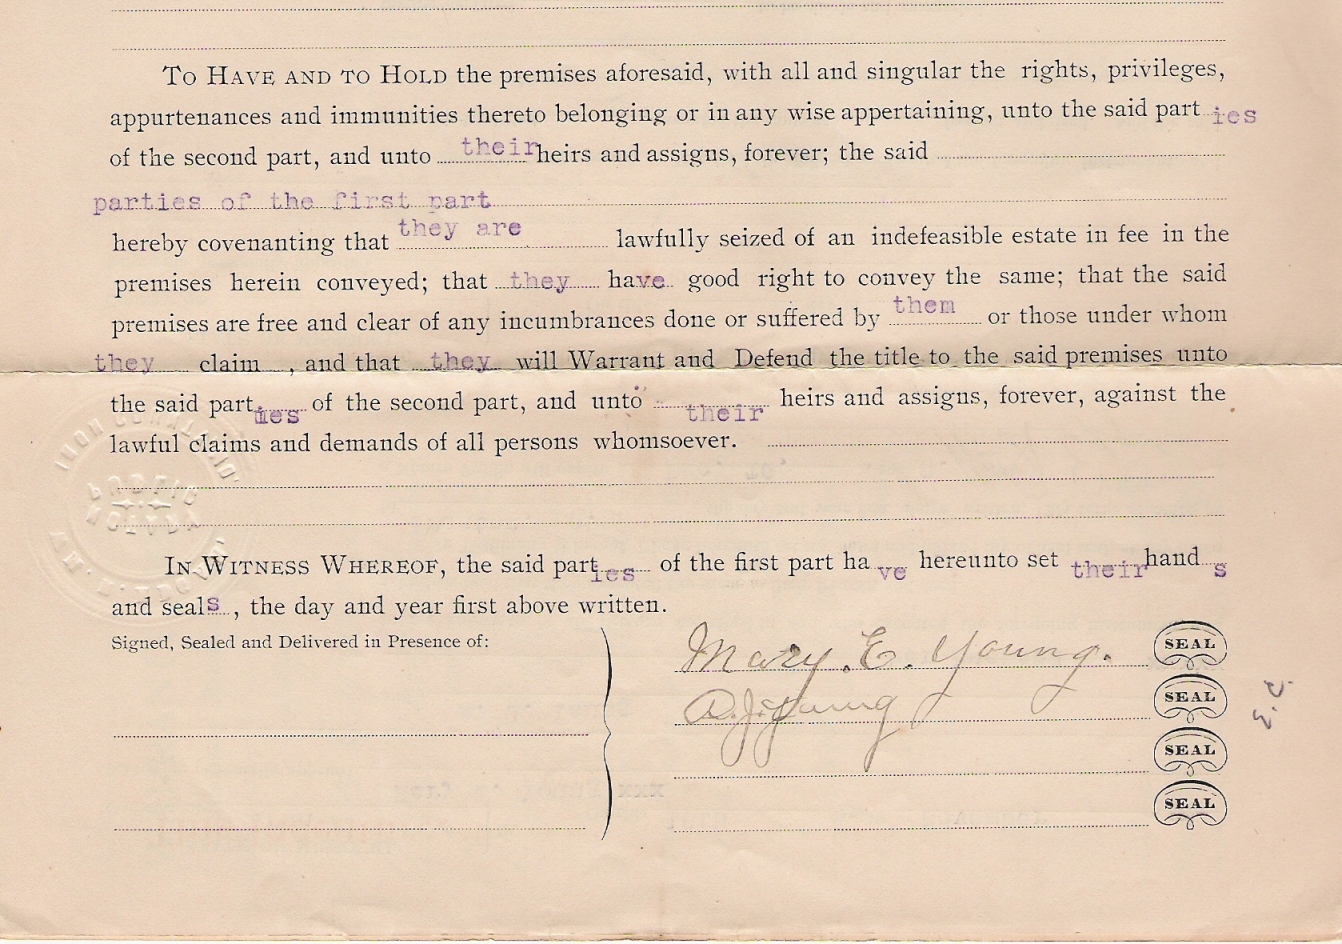 To Have and to Hold the premises aforesaid, with all and singular the rights, privileges,
appurtenances and immunities thereto belonging or in any wise appertaining, unto the said part ies
of the second part, and unto their heirs and assigns, forever; the said
parties of the first part
hereby covenanting that they are lawfully seized of an indefeasible estate in fee in the
premises herein conveyed; that they have good right to convey the same; that the said
premises are free and clear of any incumbrances done or suffered by them or those under whom
they claim , and that they will Warrant and Defend the title to the said premises unto
the said part ies of the second part, and unto their heirs and assigns, forever, against the
lawful claims and demands of all persons whomsoever.
PUBLIC
NOTARY
In Witness Whereof, the said part ies of the first part ha ve hereunto set their hand s
and seals , the day and year first above written.
Signed, Sealed and Delivered in Presence of:
Mary. E. Young. SEAL
A.J. Young SEAL
SEAL
SEAL